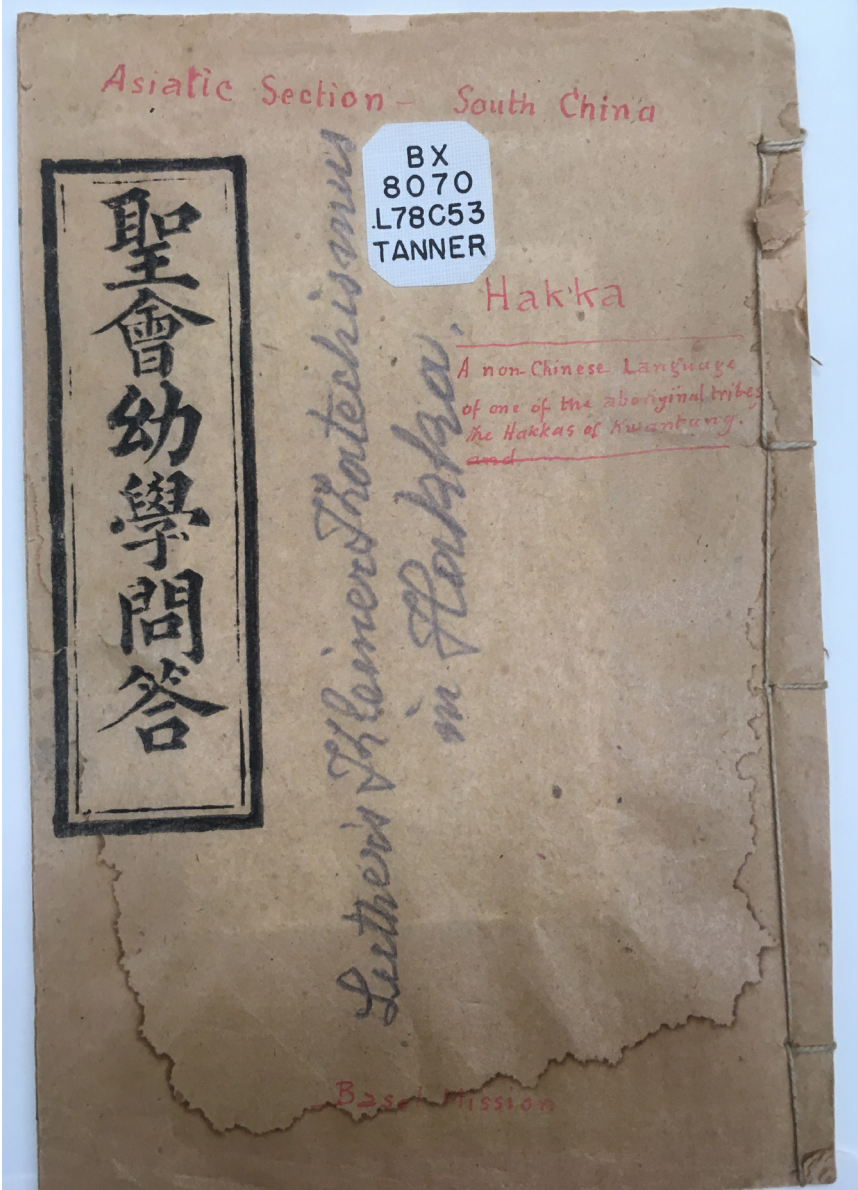 Asiatic Section - South China
聖會幼學問答
BX
8070
.L78C53
TANNER
Luther's Kleiner Katechismus
in Hakka.
Hakka
A non-Chinese Language
of one of the aboriginal tribes
the Hakkas of Kwantung.
and
Basel Mission